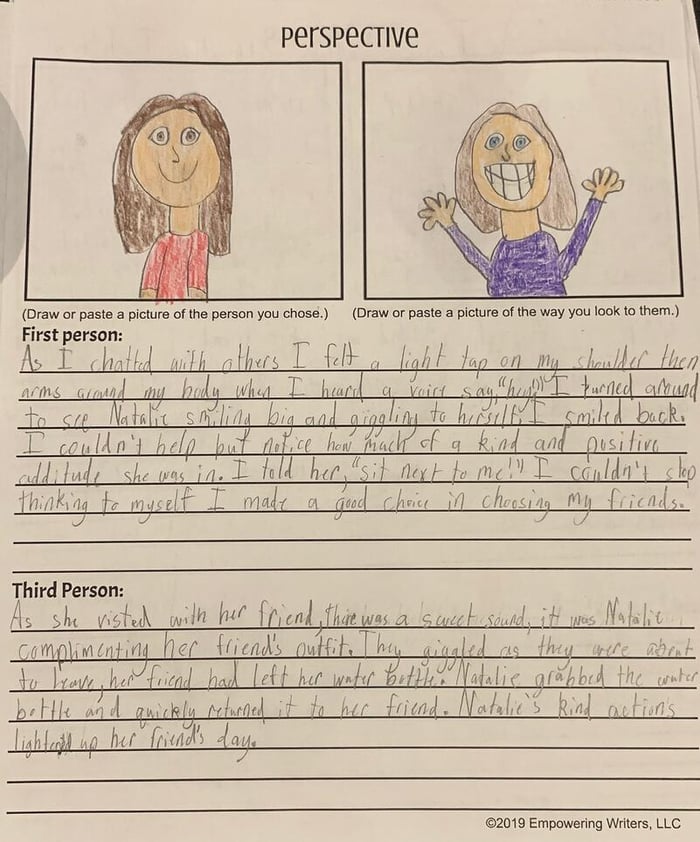 PERSPECTIVE
(Draw or paste a picture of the person you chose.) (Draw or paste a picture of the way you look to them.)
First person:
As I chatted with others I felt a light tap on my shoulder then
arms around my body when I heard a voice say, "hey!" I turned around
to see Natalie smiling big and giggling to herself, I smiled back.
I couldn't help but notice how much of a kind and positive
additude she was in. I told her, "sit next to me!" I couldn't stop
thinking to myself I made a good choice in choosing my friends.
Third Person:
As she visted with her friend, there was a sweet sound, it was Natalie
complimenting her friend's outfit. They giggled as they were about
to leave, her friend had left her water bottle. Natalie grabbed the water
bottle and quickly returned it to her friend. Natalie's kind actions
lightened up her friend's day.
©2019 Empowering Writers, LLC